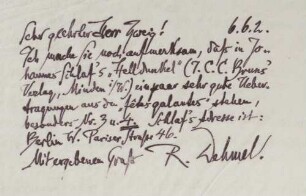 Sehr geehrter Herr Zweig! 6.6.2.
Ich mache Sie noch aufmerksam, daß in Jo-
hannes Schlaf's „Helldunkel" (J.C.C. Bruns'
Verlag, Minden i/W.) ein paar sehr gute Ueber-
tragungen aus den „Fêtes galantes" stehen,
besonders Nr. 3 u. 4. Schlaf's Adresse ist:
Berlin W. Pariser Straße 46.
Mit ergebenem Gruß R. Dehmel.